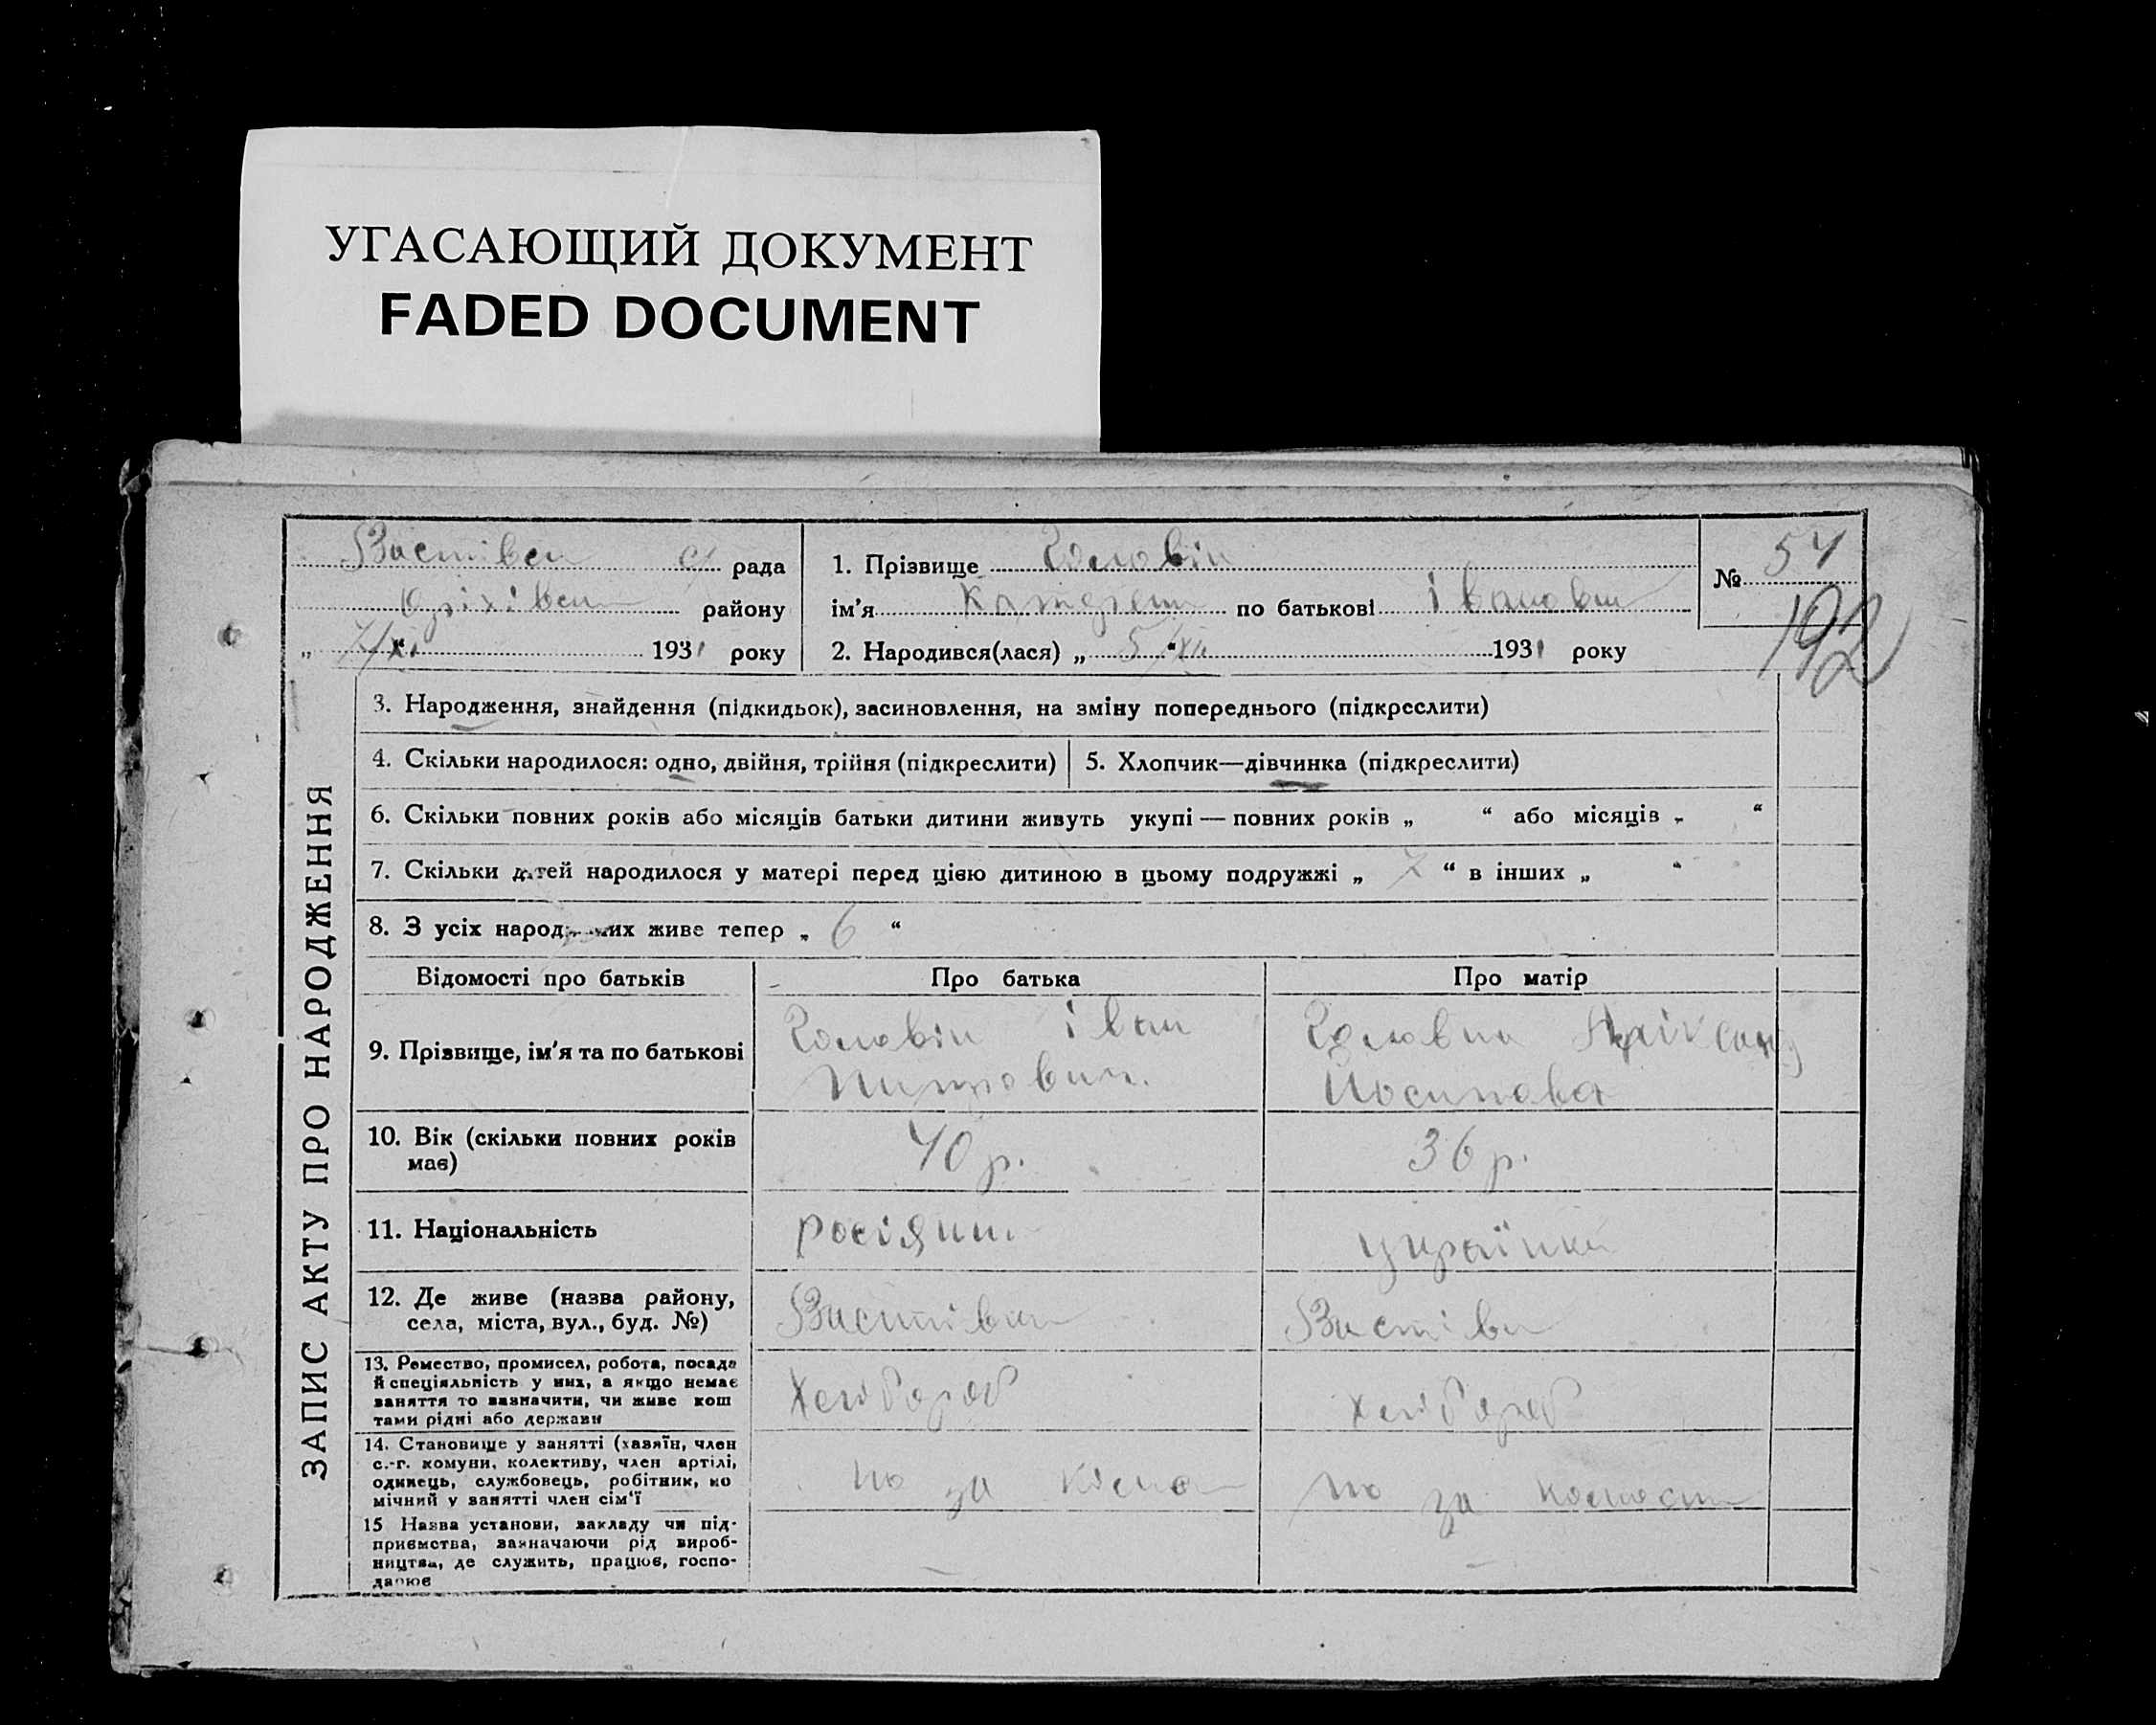 УГАСАЮЩИЙ ДОКУМЕНТ
FADED DOCUMENT
с/ рада
району
„ 7/XI “ 1931 року
1. Прізвище Головін
ім'я Катерин по батькові Івановн
2. Народився(лася) „ 5 “ 1931 року
№ 54
192
ЗАПИС АКТУ ПРО НАРОДЖЕННЯ
3. Народження, знайдення (підкидьок), засиновлення, на зміну попереднього (підкреслити)
4. Скільки народилося: одно, двійня, трійня (підкреслити)
5. Хлопчик—дівчинка (підкреслити)
6. Скільки повних років або місяців батьки дитини живуть укупі — повних років „ “ або місяців „ “
7. Скільки дітей народилося у матері перед цією дитиною в цьому подружжі „ 7 “ в інших „ “
8. З усіх народжених живе тепер „ 6 “
Відомості про батьків Про батька Про матір
9. Прізвище, ім'я та по батькові
Головін Іван
Головна
Йосипова
10. Вік (скільки повних років
має)
40 р.
36 р.
11. Національність
росіянин
українка
12. Де живе (назва району,
села, міста, вул., буд. №)
13. Ремество, промисел, робота, посада
й спеціяльність у них, а якщо немає
заняття то зазначити, чи живе кош
тами рідні або держави
Хлібороб
хлібороб
14. Становище у занятті (хазяїн, член
с.-г. комуни, колективу, член артілі,
одинець, службовець, робітник, по
мічний у занятті член сім'ї
15 Назва установи, закладу чи під-
приємства, зазначаючи рід вироб-
ництва, де служить, працює, госпо-
дарює